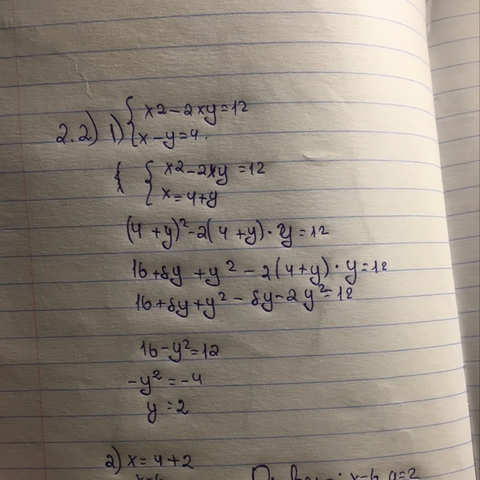 2.2) 1) { x2-2xy=12
x-y=4.
{ { x2-2xy=12
x=4+y
(4+y)²-2(4+y)·y=12
16+8y+y²-2(4+y)·y=12
16+8y+y²-8y-2y²=12
16-y²=12
-y²=-4
y=2
2) x=4+2
x=6 x=6, y=2